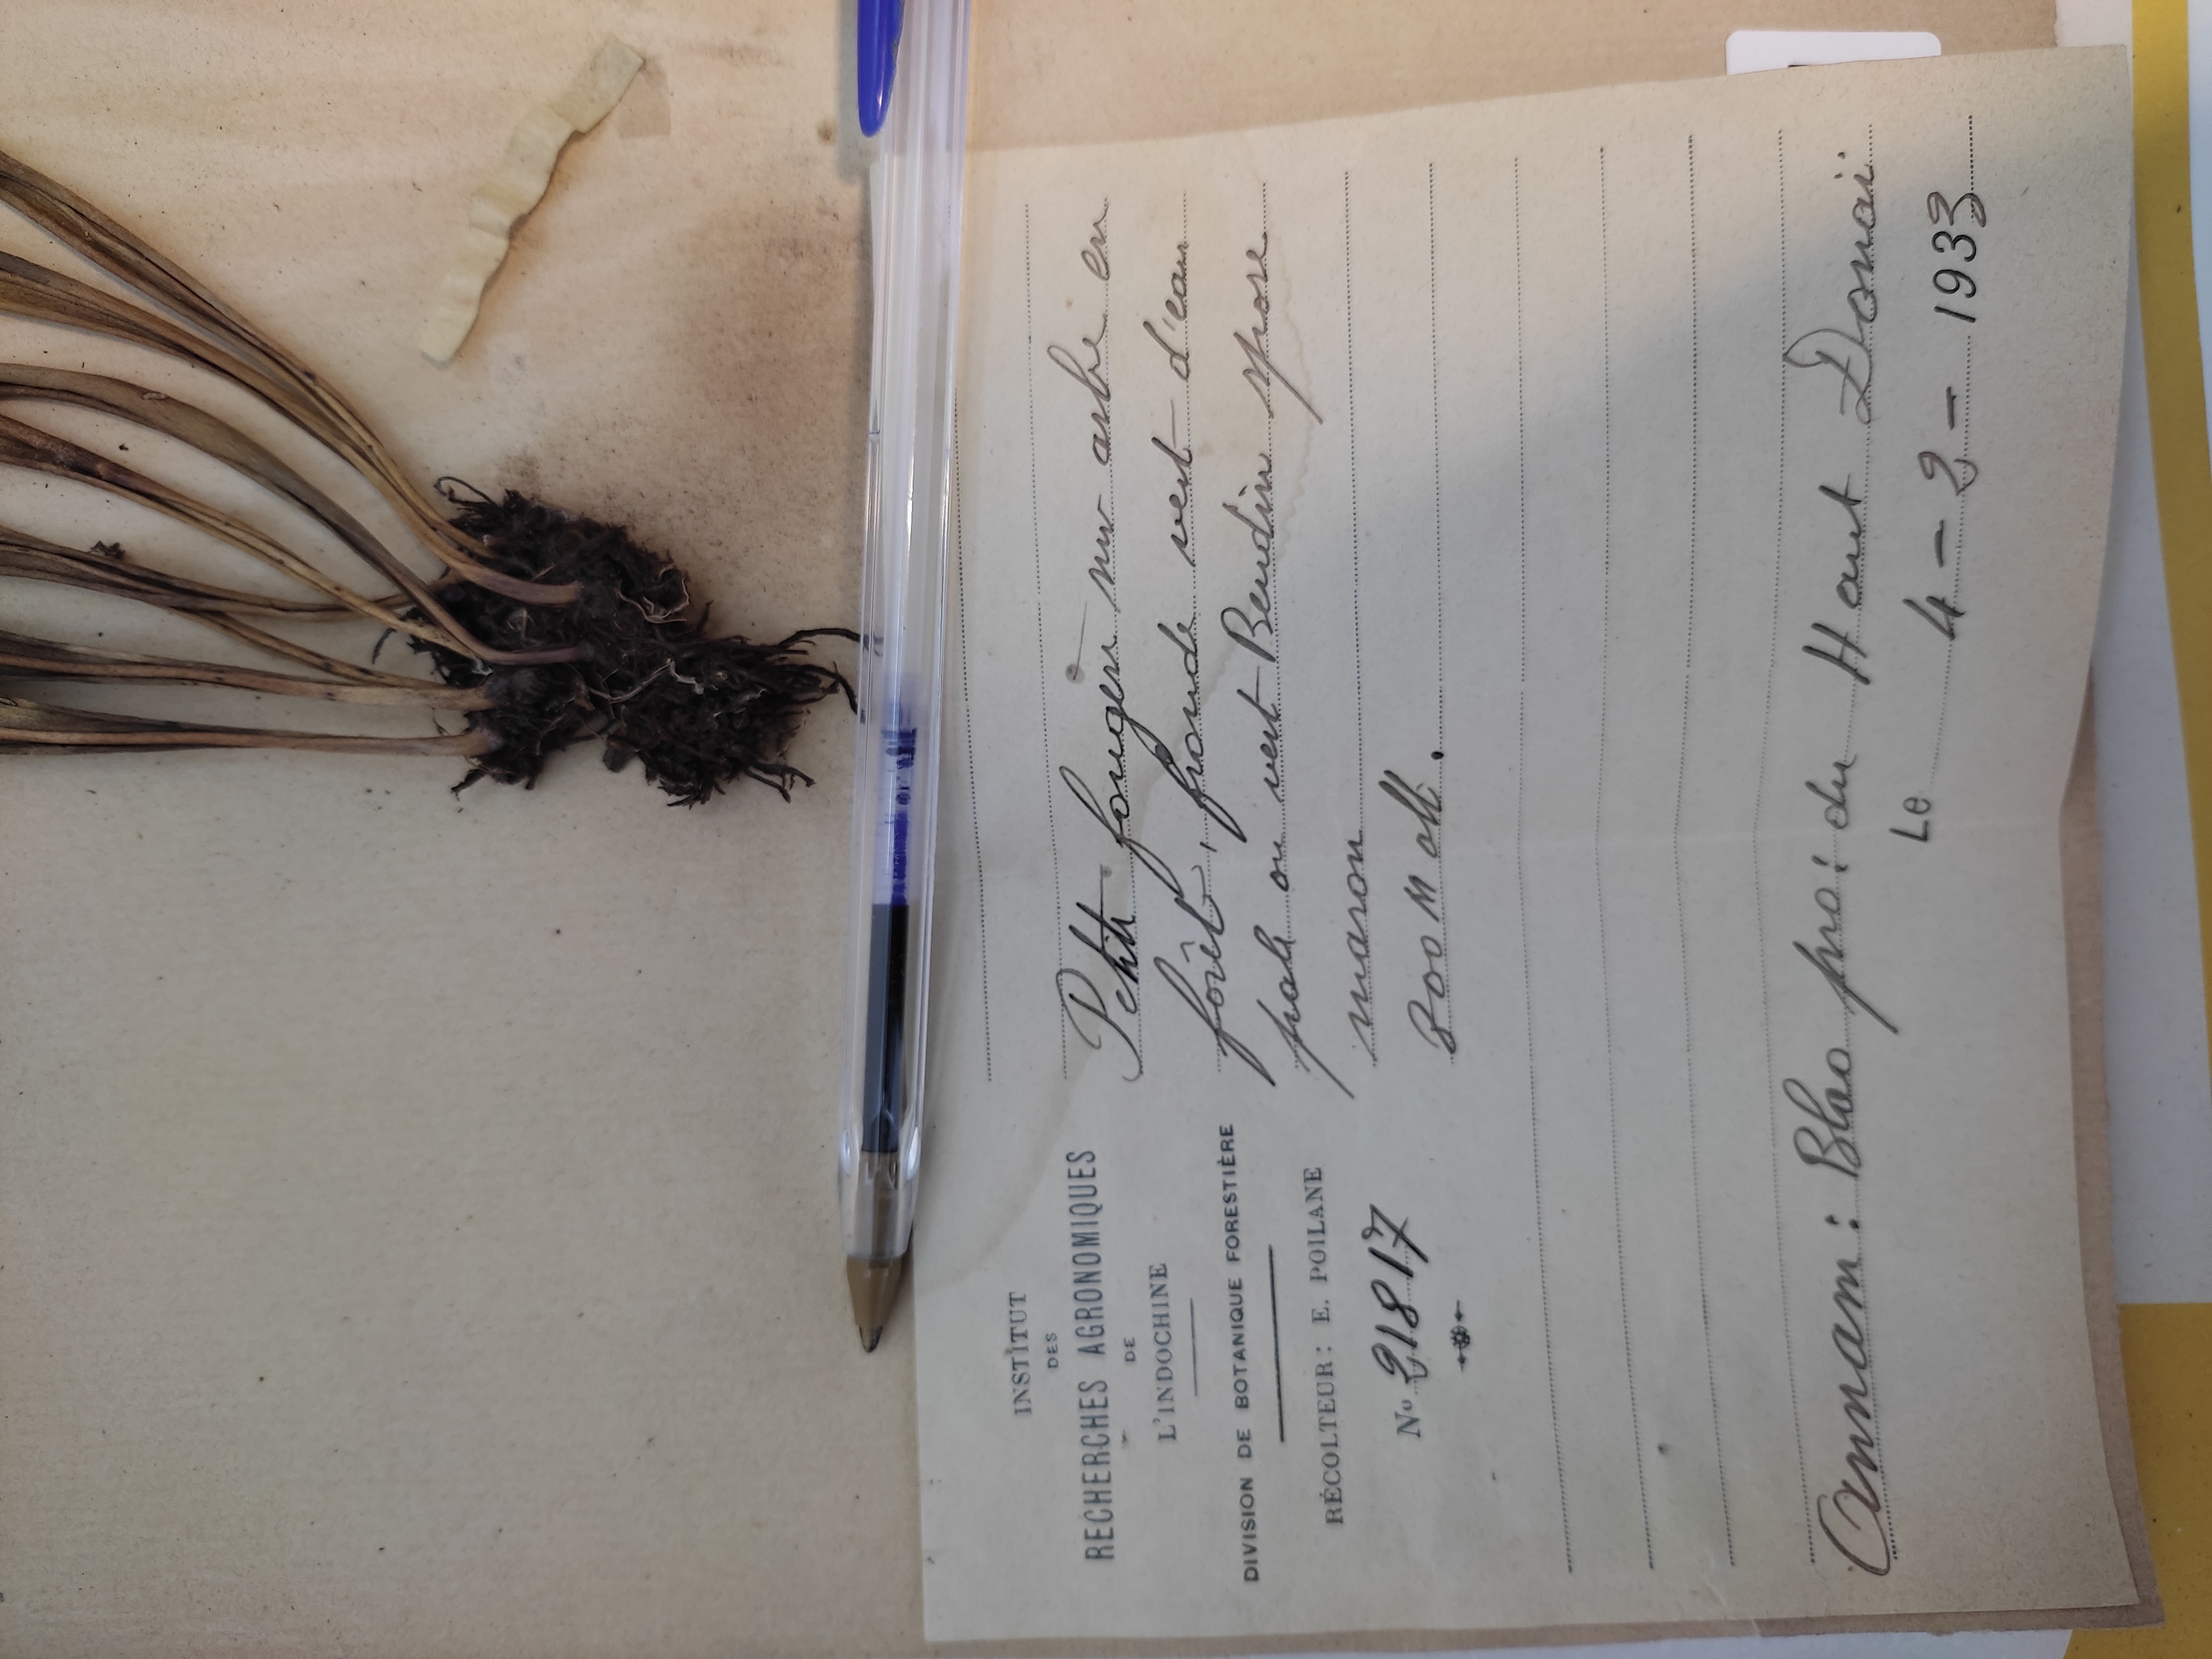 INSTITUT
DES
RECHERCHES AGRONOMIQUES
DE
L'INDOCHINE
DIVISION DE BOTANIQUE FORESTIÈRE
RÉCOLTEUR: E. POILANE
Nº 21817
Petite fougère sur arbre en
forêt, fronde vert d'eau
pale ou vert Beudin spore
maron
800 M alt.
Annam: Blao pro: du Haut Donai.
Le 4 - 2 - 1933